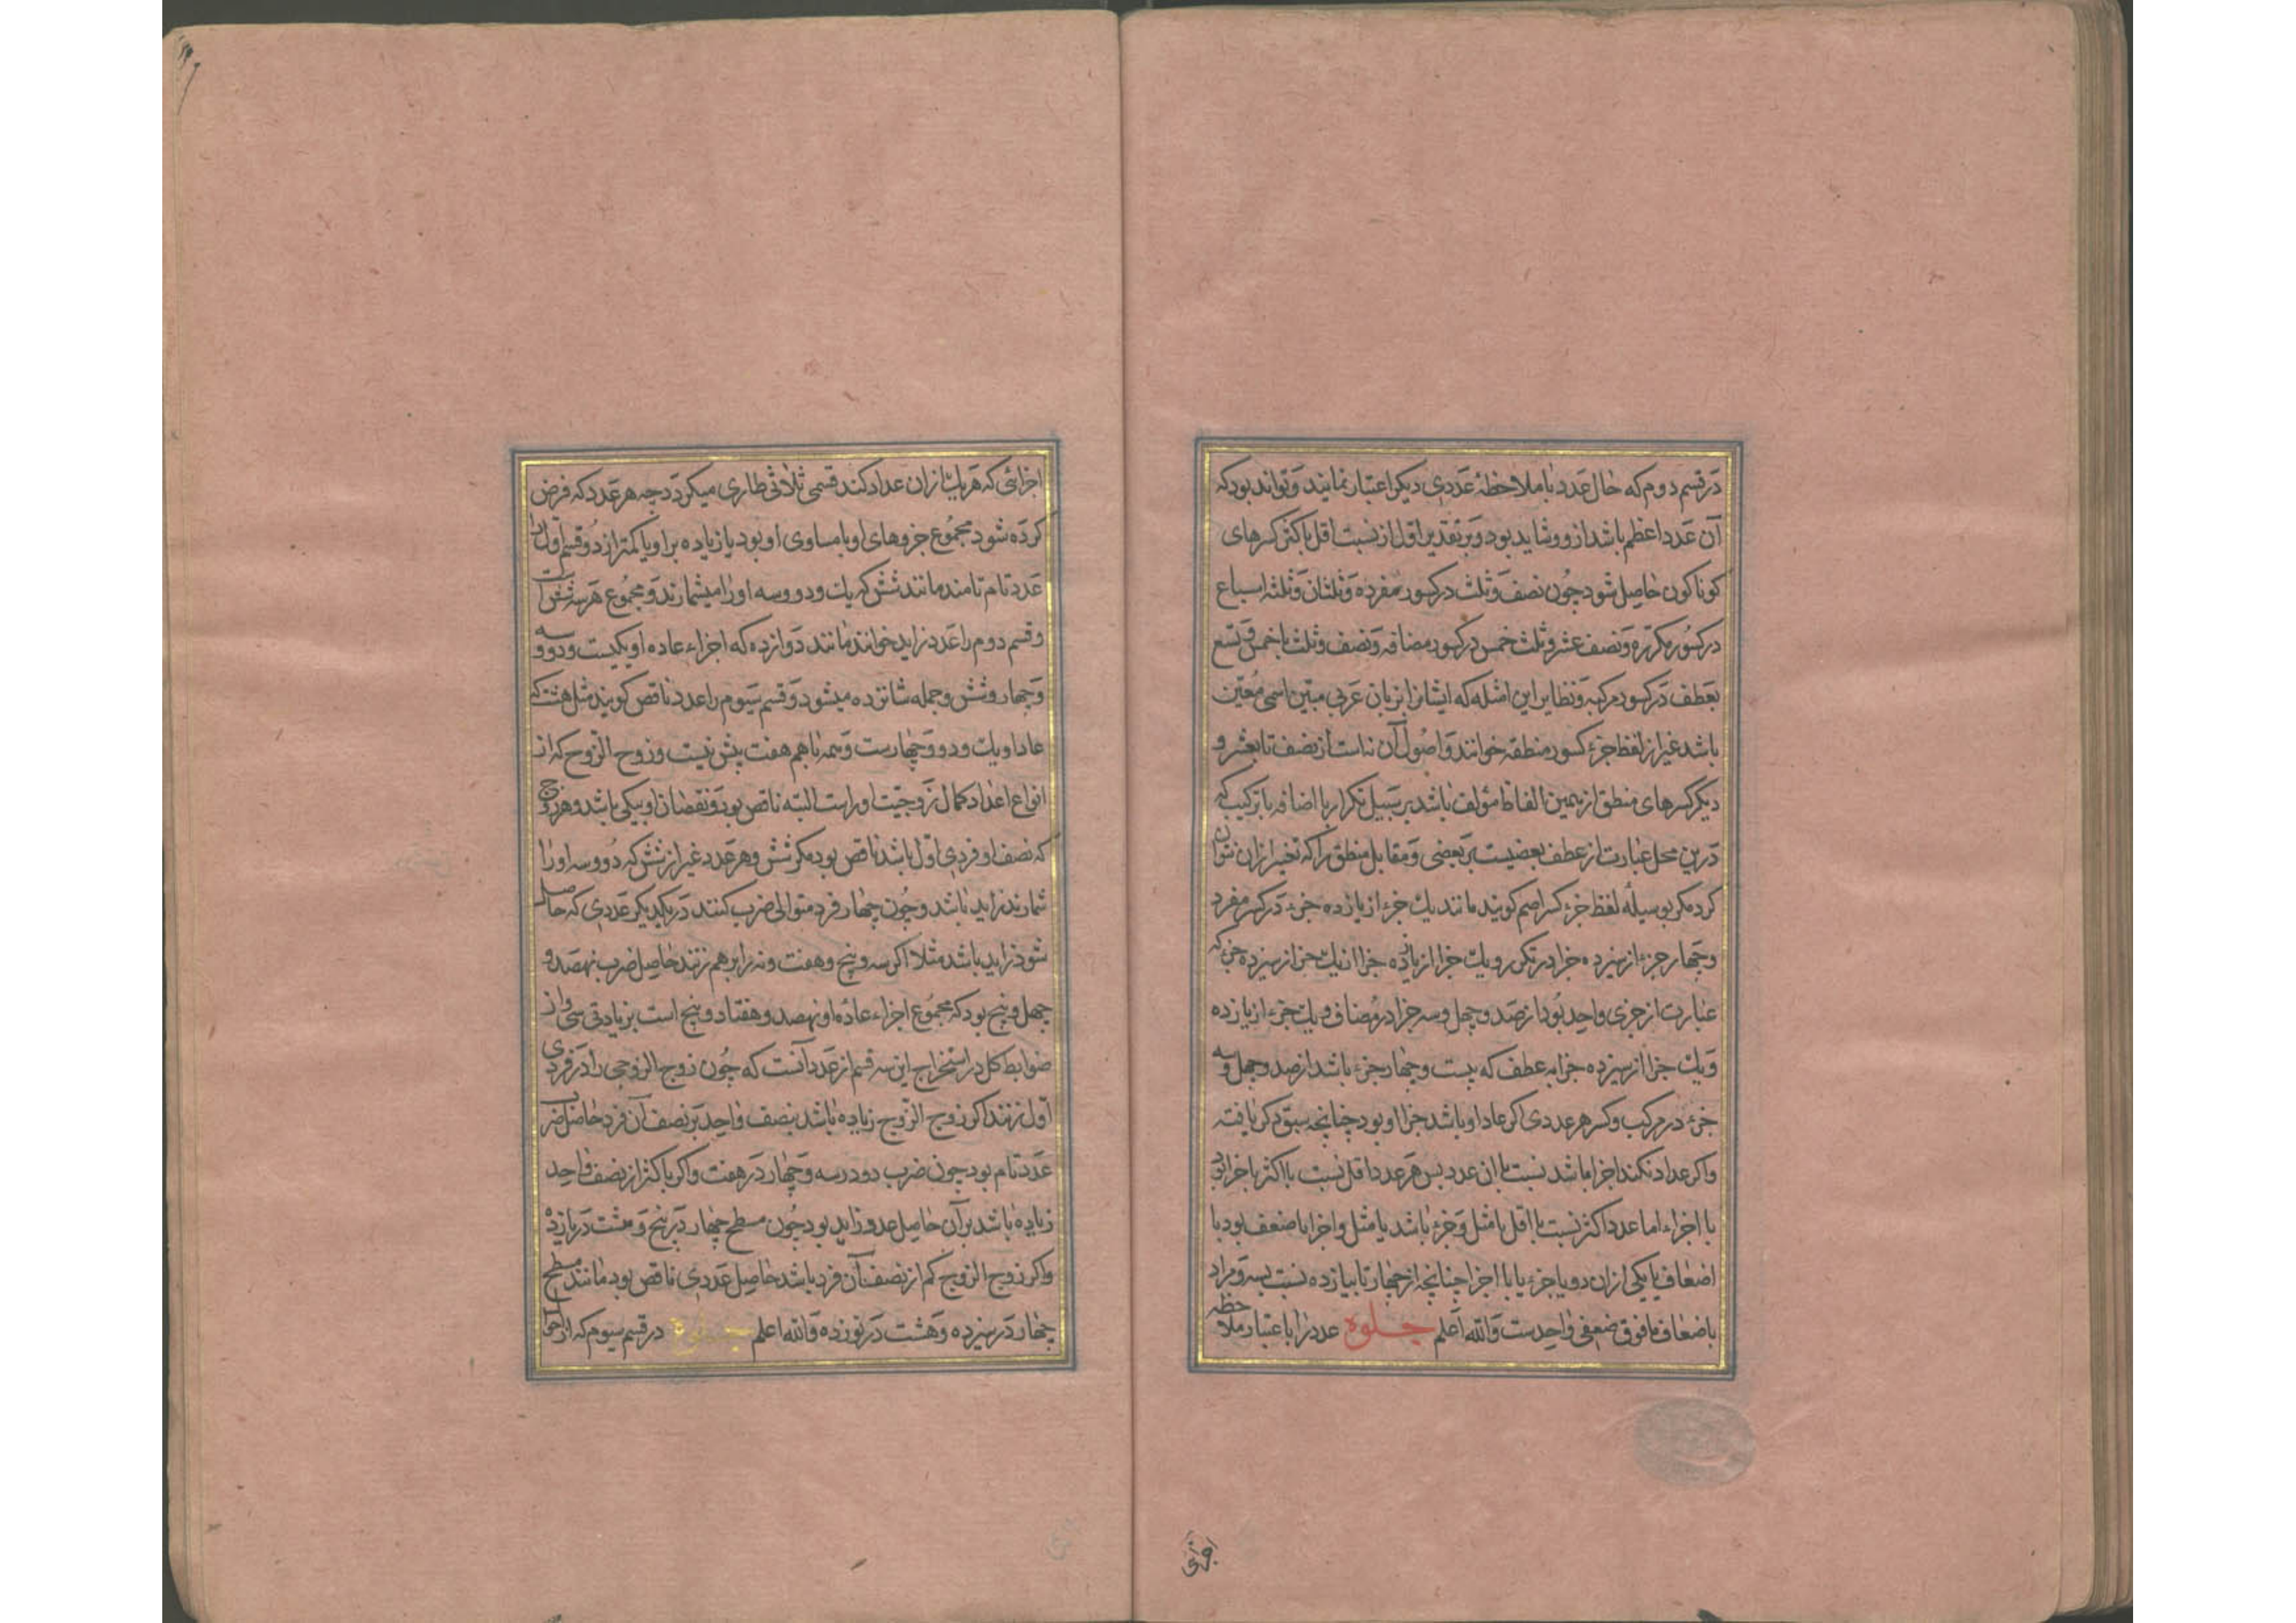 در قسم دوم که حال عدد با ملاحظهٔ عددی دیکر اعتبار نمایند و تواند بود که
آن عدد اعظم باشد ازو و شاید بود و بر تقدیر اول از نسبت اقل باکثر کسرهای
کوناکون حاصل شود چون نصف و ثلث در کسور مفرده و ثلثان و ثلثه اسباع
در کسور مکرّره و نصف عشر و ثلث خمس در کسور مضافه و نصف و ثلث یا خمس و تسع
بعطف در کسور مرکبه و نظایر این امثله که ایشانرا بزبان عربی مبین اسمی معیّن
باشد غیر از لفظ جزء کسور منطقه خوانند و اصول آن نه است از نصف تا بعشر و
دیگر کسرهای منطق از همین الفاظ مؤلف باشد بر سبیل تکرار یا اضافه یا ترکیب که
درین محل عبارت از عطف بعضیست بر بعضی و مقابل منطق را که تعبیر ازان نتوان
کرد مکر بوسیلهٔ لفظ جزء کسر اصم کویند مانند یك جزء از یازده جزء در کسر مفرد
و چهار جزء از سیزده جزا در تکرر و یك جزا از یازده جزا از یك جزا از سیزده جزء که
عبارت از جزی واحد بود از صد و چهل و سه جزا در مضاف و یك جزء از یازده
و یك جزا از سیزده جزا به عطف که بیست و چهار جزء باشد از صد و چهل و سه
جزء در مرکب و کسر هر عددی اکر عاد او باشد جزا او بود چنانچه سبق ذکر یافته
و اکر عداد نکند اجزا باشد نسبت با ان عدد بس هر عدد اقل نسبت باکثر یا جزا بود
یا اجزاء اما عدد اکثر نسبت با اقل یا مثل و جزء باشد یا مثل و اجزا یا ضعف بود یا
اضعاف یا یکی ازان دو یا جزء یا با اجزا چنانچه از چهار تا بیازده نسبت بسه و مراد
باضعاف ما فوق ضعفی واحدست والله اعلم جلوه عدد را با عتبار ملاحظه
اجزائی که هر یك ازان عداد کند قسمی ثلاثی طاری میکردد چه هر عدد که فرض
کرده شود مجموع جزوهای او یا مساوی او بود یا زیاده بر او یا کمتر از دو قسم اول را
عدد تام نامند مانند شش که یك و دو و سه او را میشمارند و مجموع هر سه شش است
و قسم دوم را عدد زاید خوانند مانند دوازده که اجزاء عاده او یکیست و دو و سه
و چهار و شش و جمله شانزده میشود و قسم سیوم را عدد ناقص کویند مثل هشت که
عاد او یك و دو و چهارست و همه باهم هفت بیش نیست و زوج الزوج که از
انواع اعداد کمال زوجیّت او راست البته ناقص بود و نقصان او بیکی باشد و هر زوج
که نصف او فردی اوّل باشد ناقص بود مکر شش و هر عدد غیر از شش که دو و سه او را
شمارند زاید باشد و چون چهار فرد متوالی ضرب کنند در یکدیکر عددی که حاصل
شود زاید باشد مثلا اکر سه و پنج و هفت و نه را بر هم زنند حاصل ضرب نهصد و
چهل و پنج بود که مجموع اجزاء عاده او نهصد و هفتاد و پنج است بزیادتی سی و از
ضوابط کل در استخراج این سه قسم از عدد آنست که چون زوج الزوجی را در فردی
اول زنند اکر زوج الزوج زیاده باشد بنصف واحد بر نصف آن فرد حاصل ضرب
عدد تام بود چون ضرب دو در سه و چهار در هفت و اکر باکثر از نصف واحد
زیاده باشد بر آن حاصل عدد زاید بود چون مسطح چهار در پنج و هشت در یازده
و اکر زوج الزوج کم از نصف آن فرد باشد حاصل عددی ناقص بود مانند مسطح
چهار در سیزده و هشت در نوزده والله اعلم جلوه در قسم سیوم که از احوال